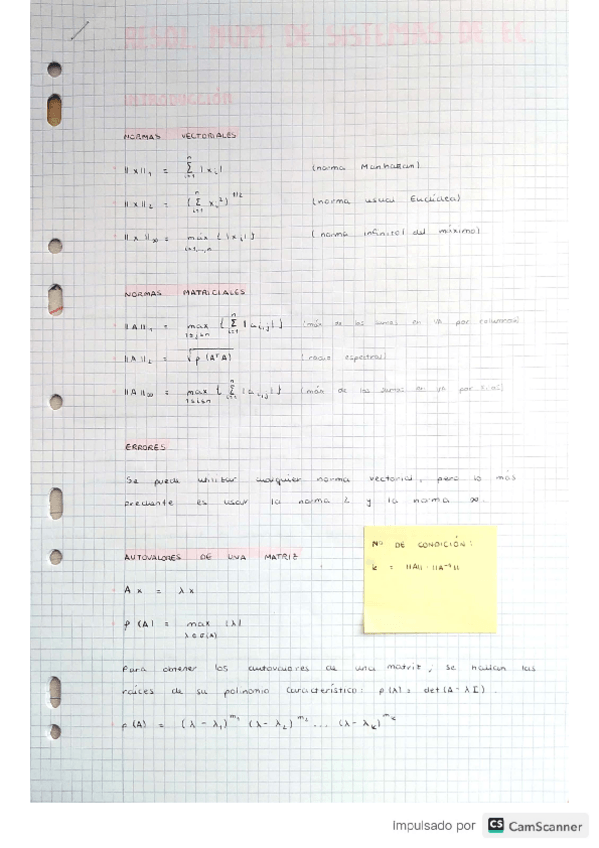 RESOL. NUM. DE SISTEMAS DE EC
INTRODUCCIÓN
NORMAS VECTORIALES
||x||₁ = Σⁿᵢ₌₁ |xᵢ| (norma Manhattan)
||x||₂ = (Σⁿᵢ₌₁ xᵢ²)^1/2 (norma usual Euclídea)
||x||∞ = máx {|xᵢ|} i=1,...,n (norma infinito/ del máximo)
NORMAS MATRICIALES
||A||₁ = max 1≤j≤n {Σⁿᵢ₌₁ |aᵢ,ⱼ|} (máx de las sumas en vA por columnas)
||A||₂ = √ρ(AᵀA) (radio espectral)
||A||∞ = max 1≤i≤n {Σⁿ |aᵢ,ⱼ|} (máx de las sumas en vA por
ERRORES
Se puede utilizar cualquier norma vectorial, pero lo más
es usar la norma 2 y la norma ∞.
Nº DE CONDICIÓN:
k = ||A|| · ||A⁻¹||
AUTOVALORES DE UNA MATRIZ
Ax = λx
ρ(A) = max λ∈σ(A) |λ|
Para obtener los autovalores de una matriz, se hallan las
raíces de su polinomio característico: p(λ) = det(A - λI).
p(A) = (λ - λ₁)^m₁ (λ - λ₂)^m₂ ... (λ - λₖ)^mₖ
Impulsado por CS CamScanner